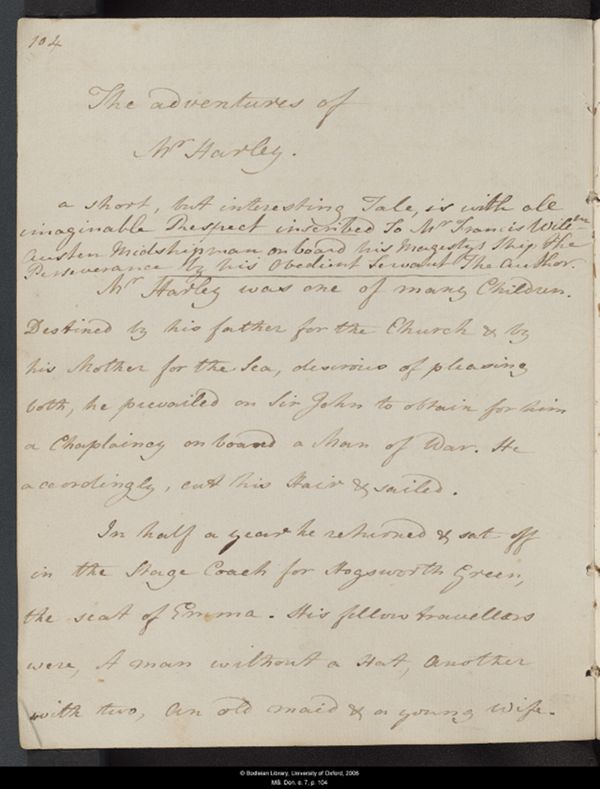 104
The adventures of
Mr Harley.
a short, but interesting Tale, is with all
imaginable Respect inscribed to Mr Francis Willm
Austen Midshipman on board his Magestys Ship the
Perseverance by his Obedient Servant The Author.
Mr Harley was one of many Children.
Destined by his father for the Church & by
his Mother for the Sea, desirous of pleasing
both, he prevailed on Sir John to obtain for him
a Chaplaincy on board a Man of War. He
accordingly, cut his Hair & sailed.
In half a year he returned & sat off
in the Stage Coach for Hogsworth Green,
the seat of Emma. His fellow travellers
were, A man without a Hat, Another
with two, An old maid & a young Wife.
© Bodleian Library, University of Oxford, 2006
MS. Don. e. 7, p. 104